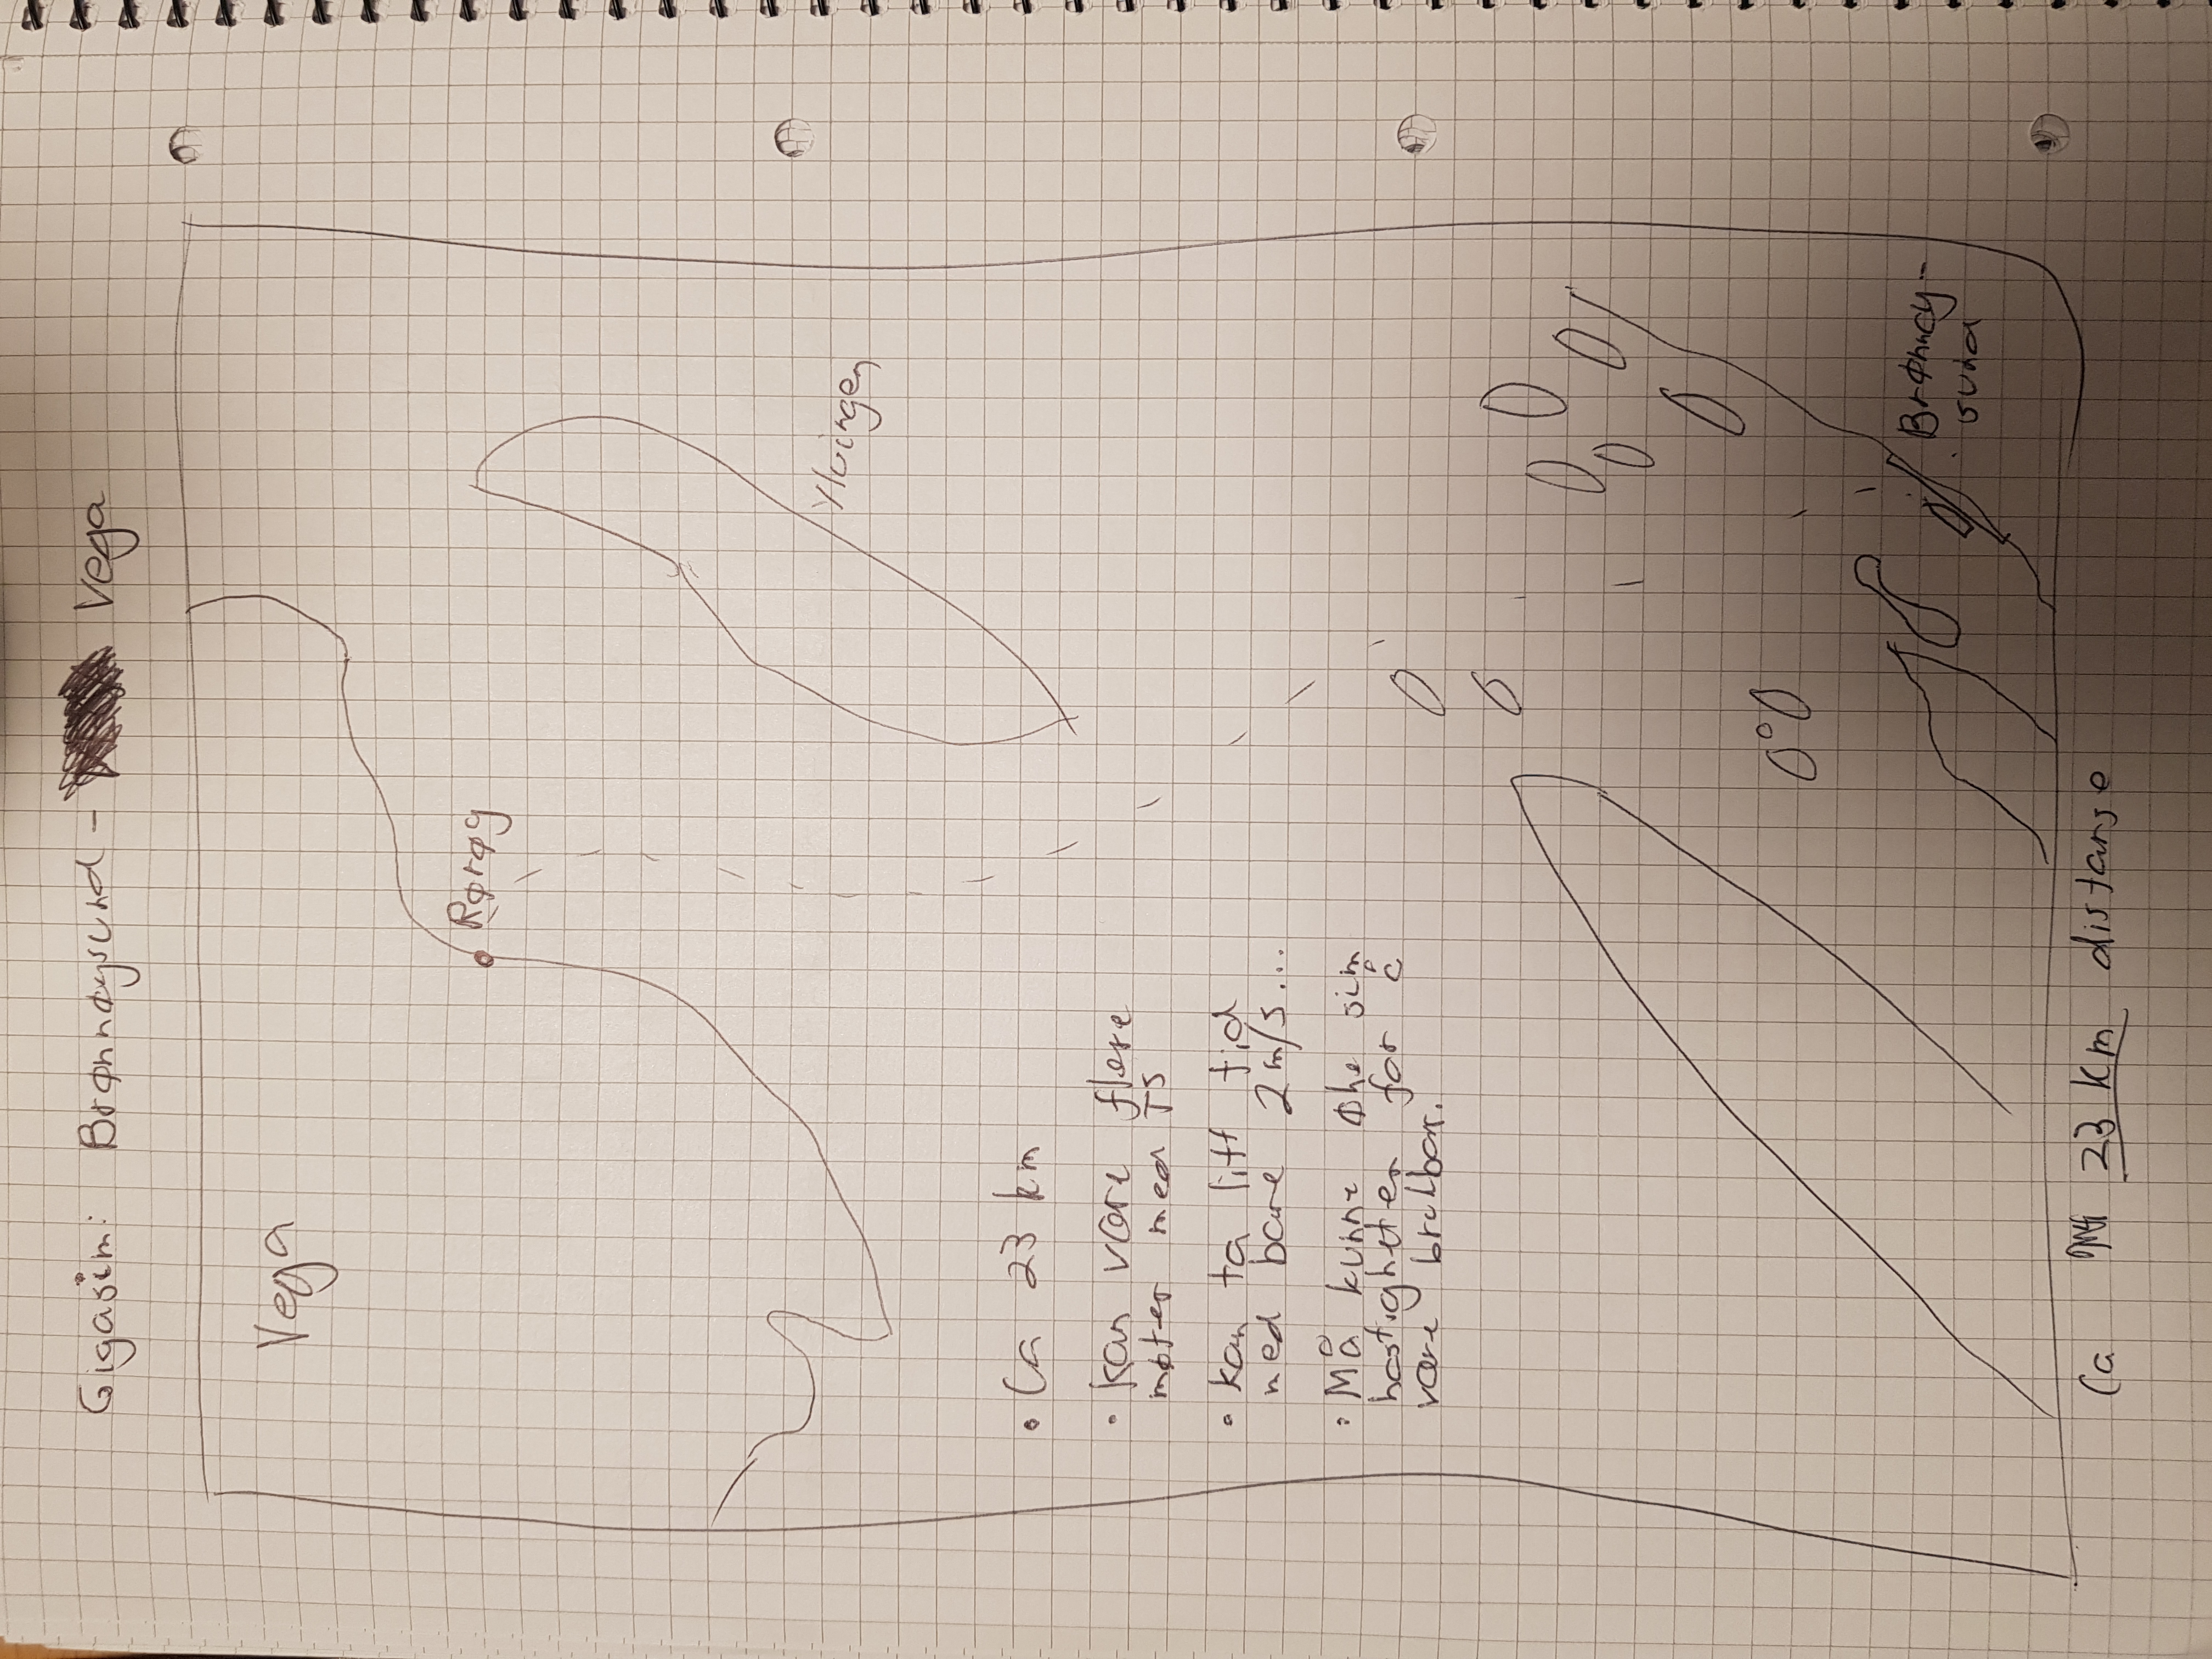 Gigasim: Brønnøysund - Vega
Vega
Rørøy
Ylvingen
• Ca 23 km
• Kan være flere
møter med TS
• kan ta litt tid
med bare 2 m/s...
• Må kunne øke sim
hastigheten for å
være brukbar.
Brønnøy-
sund
Ca 23 km distanse